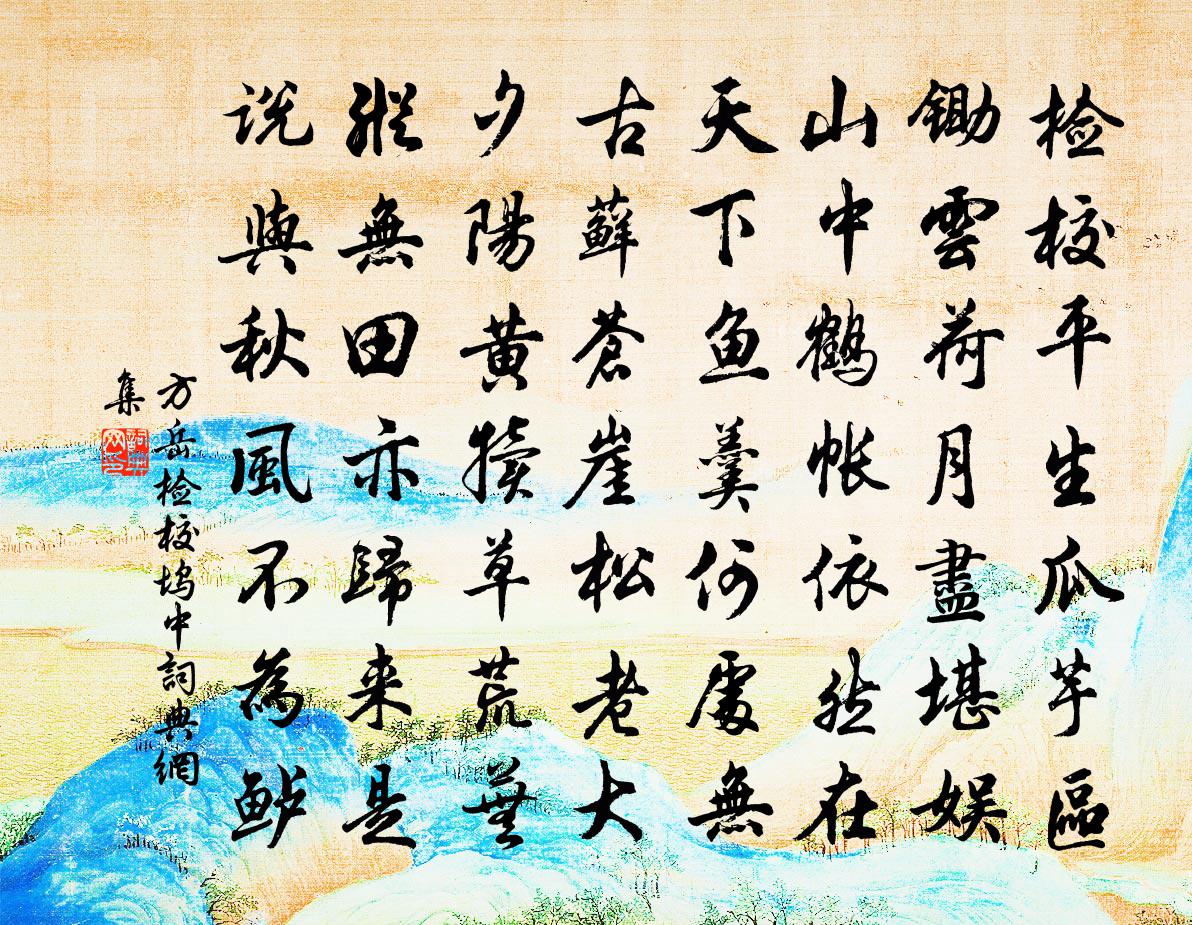 检校平生瓜芋區
鋤雲荷月盡堪娱
山中鶴帐依然在
天下鱼羹何處無
古蘚苍崖松老大
夕陽黄犢草荒蕪
縱無田亦歸来是
说與秋風不為鲈
方岳检校坞中詞典網
集